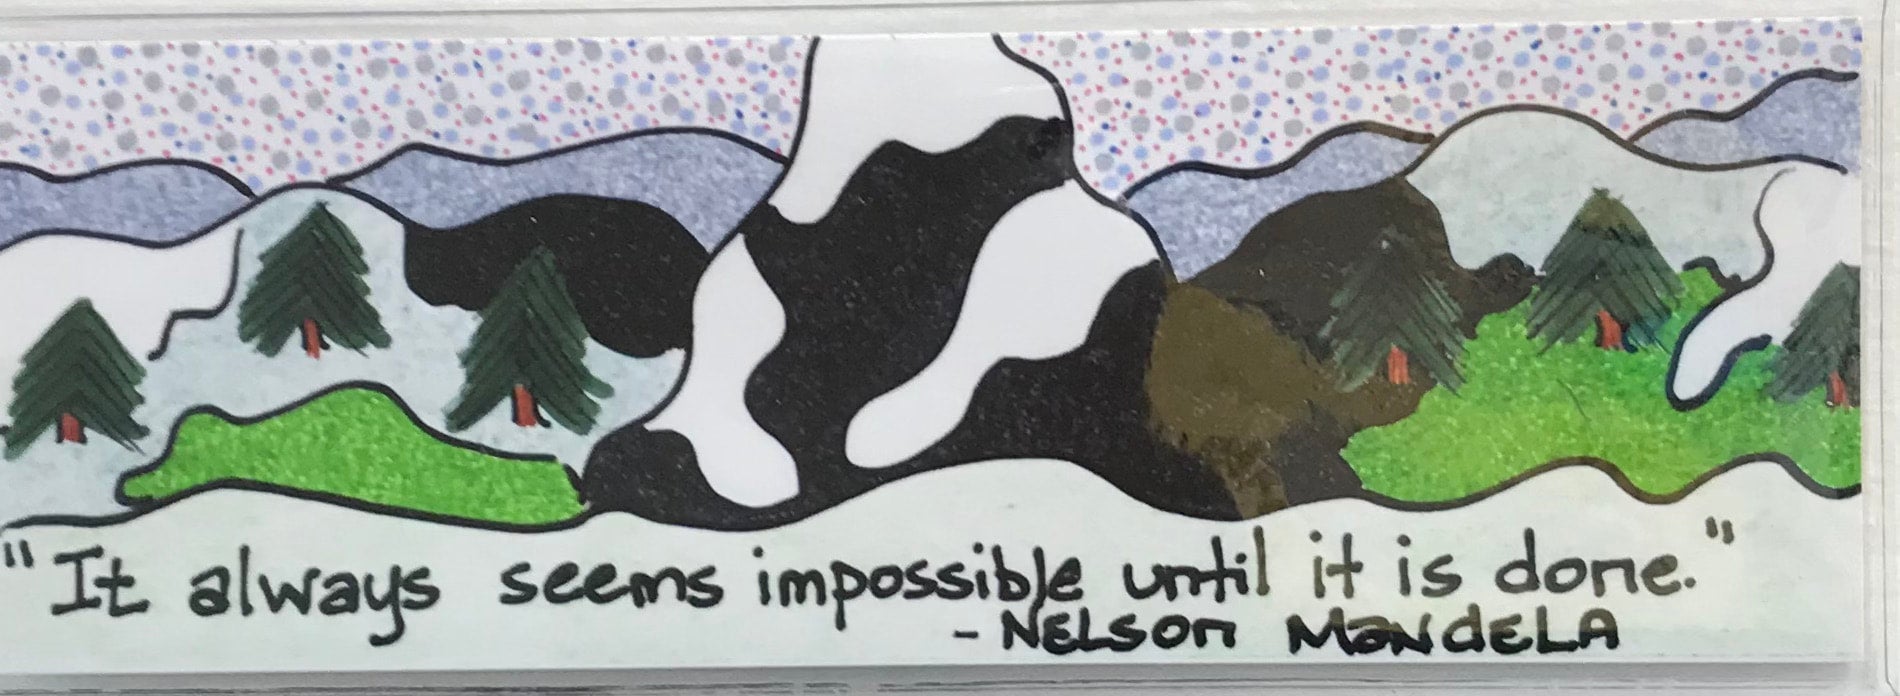 "It always seems impossible until it is done."
- NELSON MANdELA